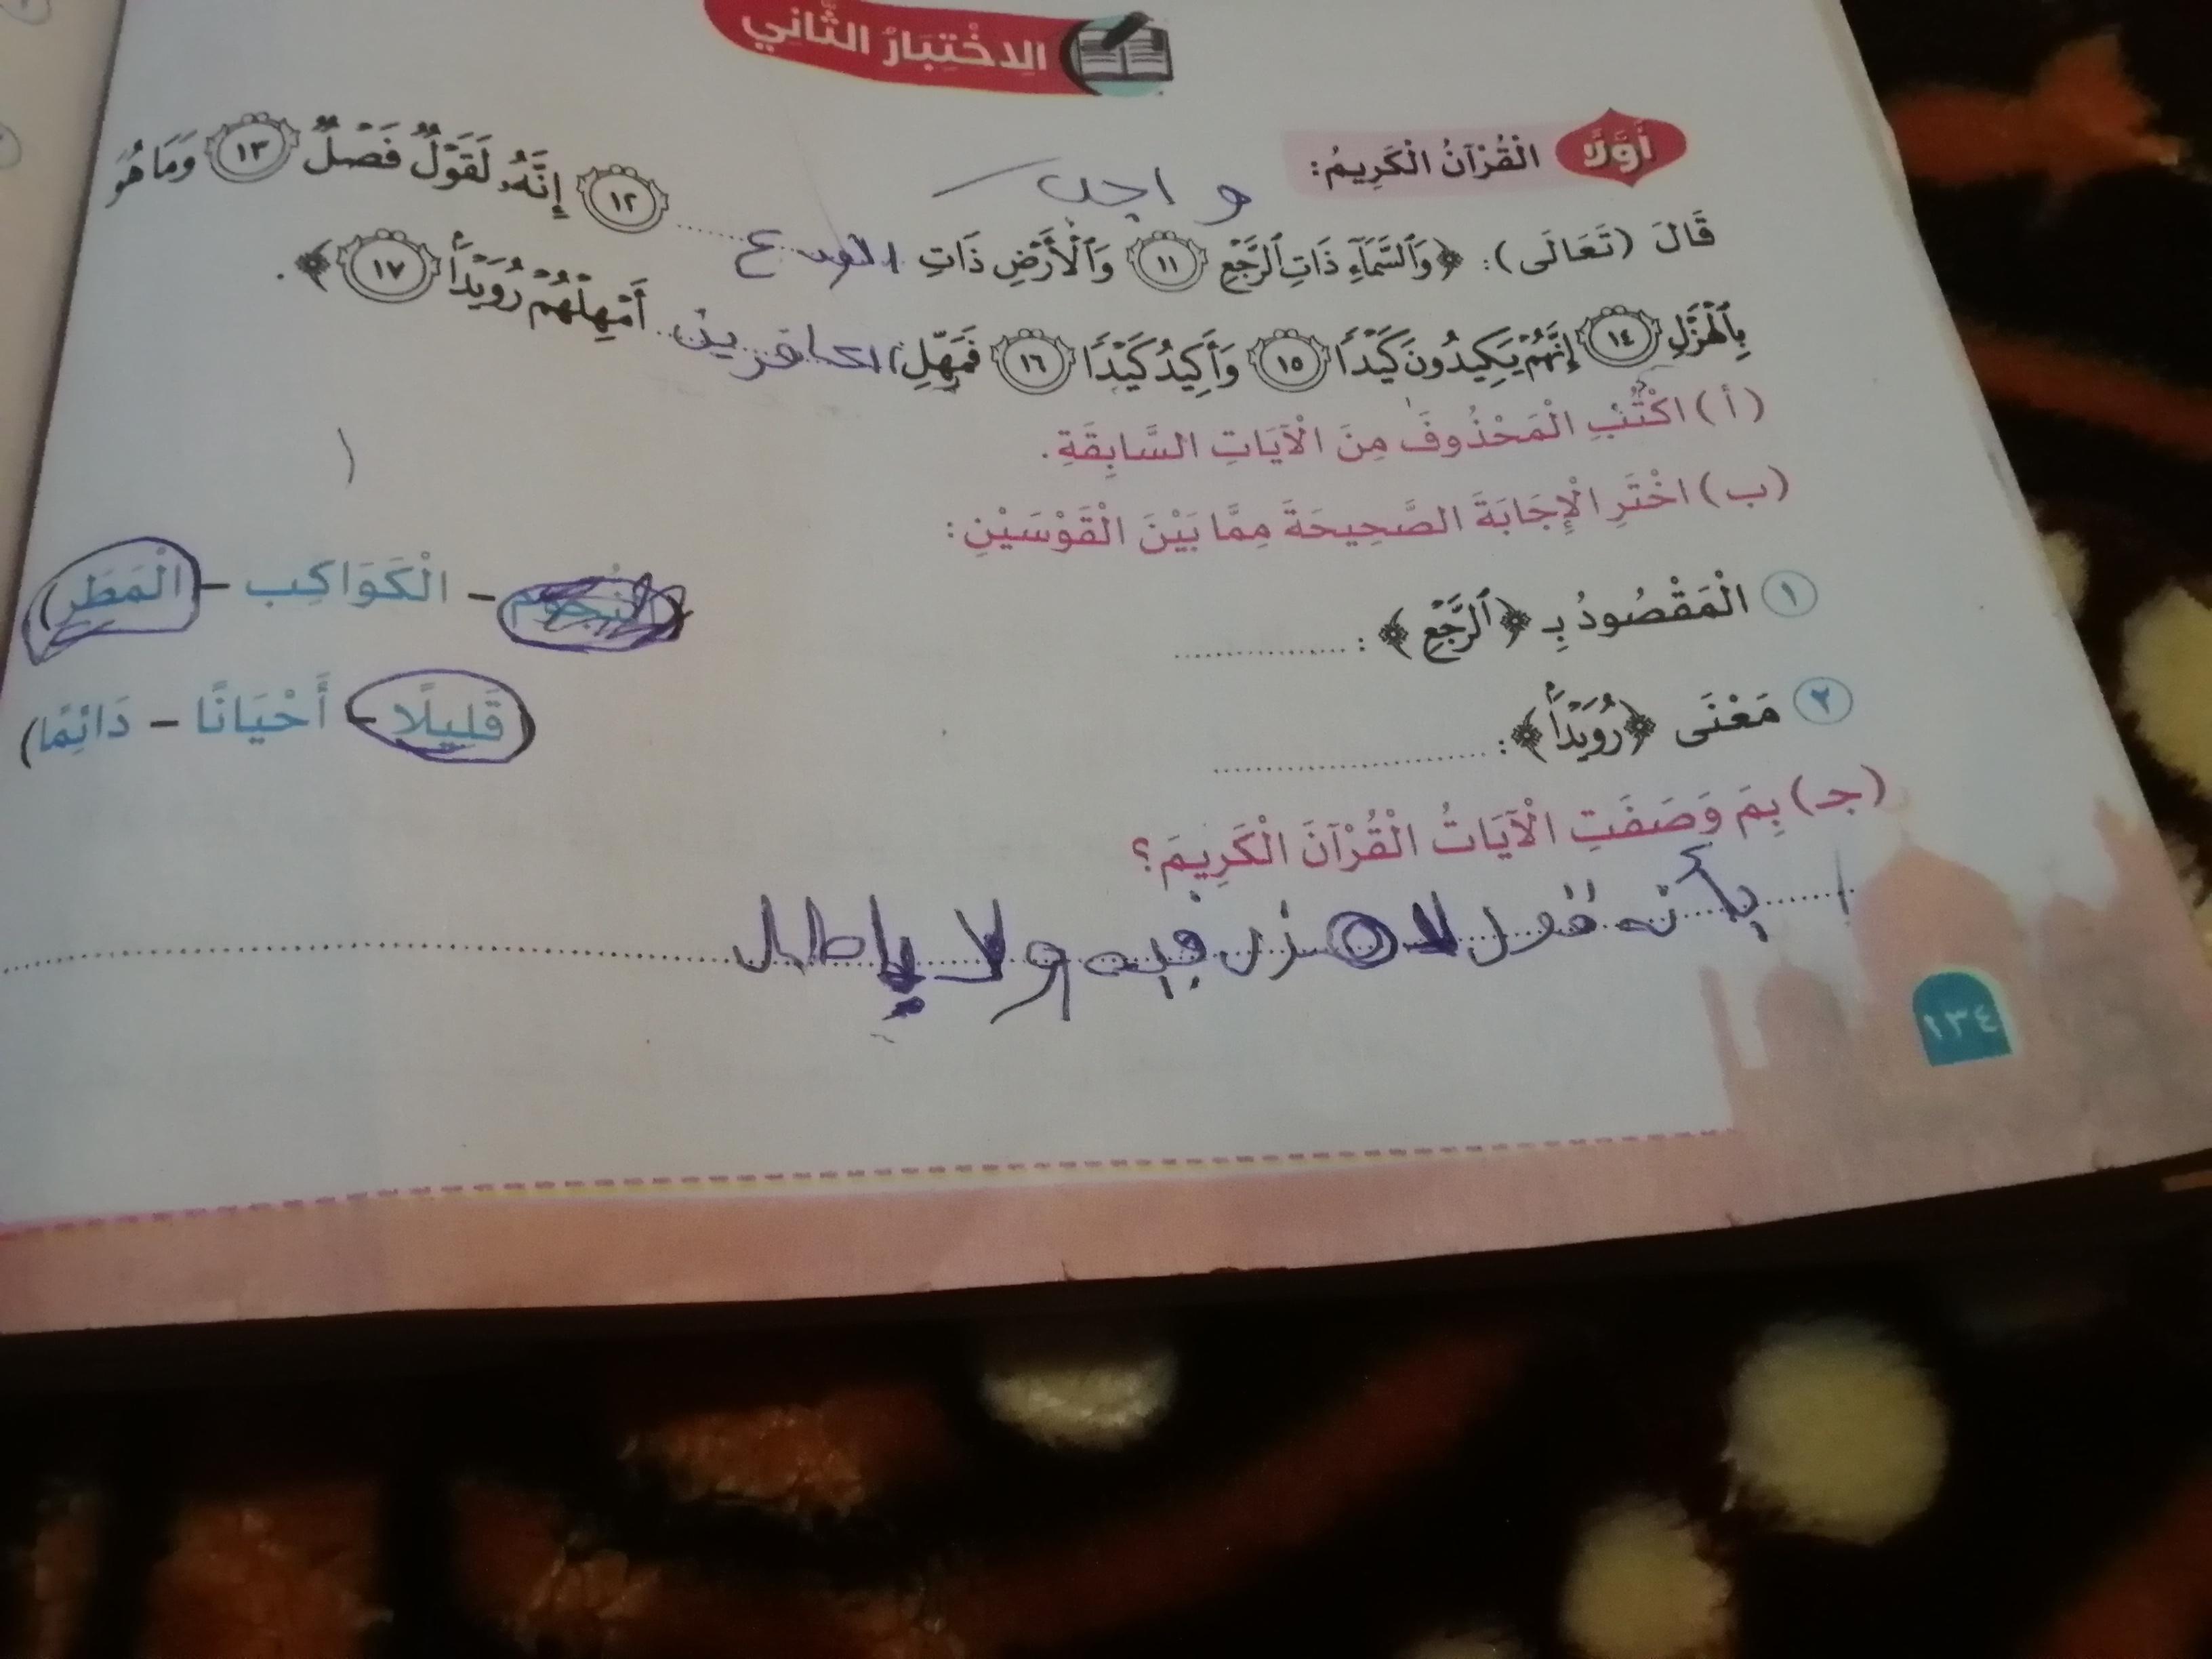 الِاخْتِبَارُ الثَّانِي
أَوَّلًا الْقُرْآنُ الْكَرِيمُ:
واجب
قَالَ (تَعَالَى): ﴿وَٱلسَّمَآءِ ذَاتِ ٱلرَّجْعِ ١١ وَٱلْأَرْضِ ذَاتِ ١٢ إِنَّهُۥ لَقَوْلٌ فَصْلٌ ١٣ وَمَا هُوَ
بِٱلْهَزْلِ ١٤ إِنَّهُمْ يَكِيدُونَ كَيْدًا ١٥ وَأَكِيدُ كَيْدًا ١٦ فَمَهِّلِ الكافرين أَمْهِلْهُمْ رُوَيْدًۢا ١٧﴾.
(أ) اكْتُبِ الْمَحْذُوفَ مِنَ الْآيَاتِ السَّابِقَةِ.
(ب) اخْتَرِ الْإِجَابَةَ الصَّحِيحَةَ مِمَّا بَيْنَ الْقَوْسَيْنِ:
١ الْمَقْصُودُ بِـ ﴿ٱلرَّجْعِ﴾: (النُّجُوم – الْكَوَاكِب – الْمَطَر)
٢ مَعْنَى ﴿رُوَيْدًۢا﴾: (قَلِيلًا – أَحْيَانًا – دَائِمًا)
(جـ) بِمَ وَصَفَتِ الْآيَاتُ الْقُرْآنَ الْكَرِيمَ؟
بأنه قول لا هزل فيه ولا باطل
١٣٤